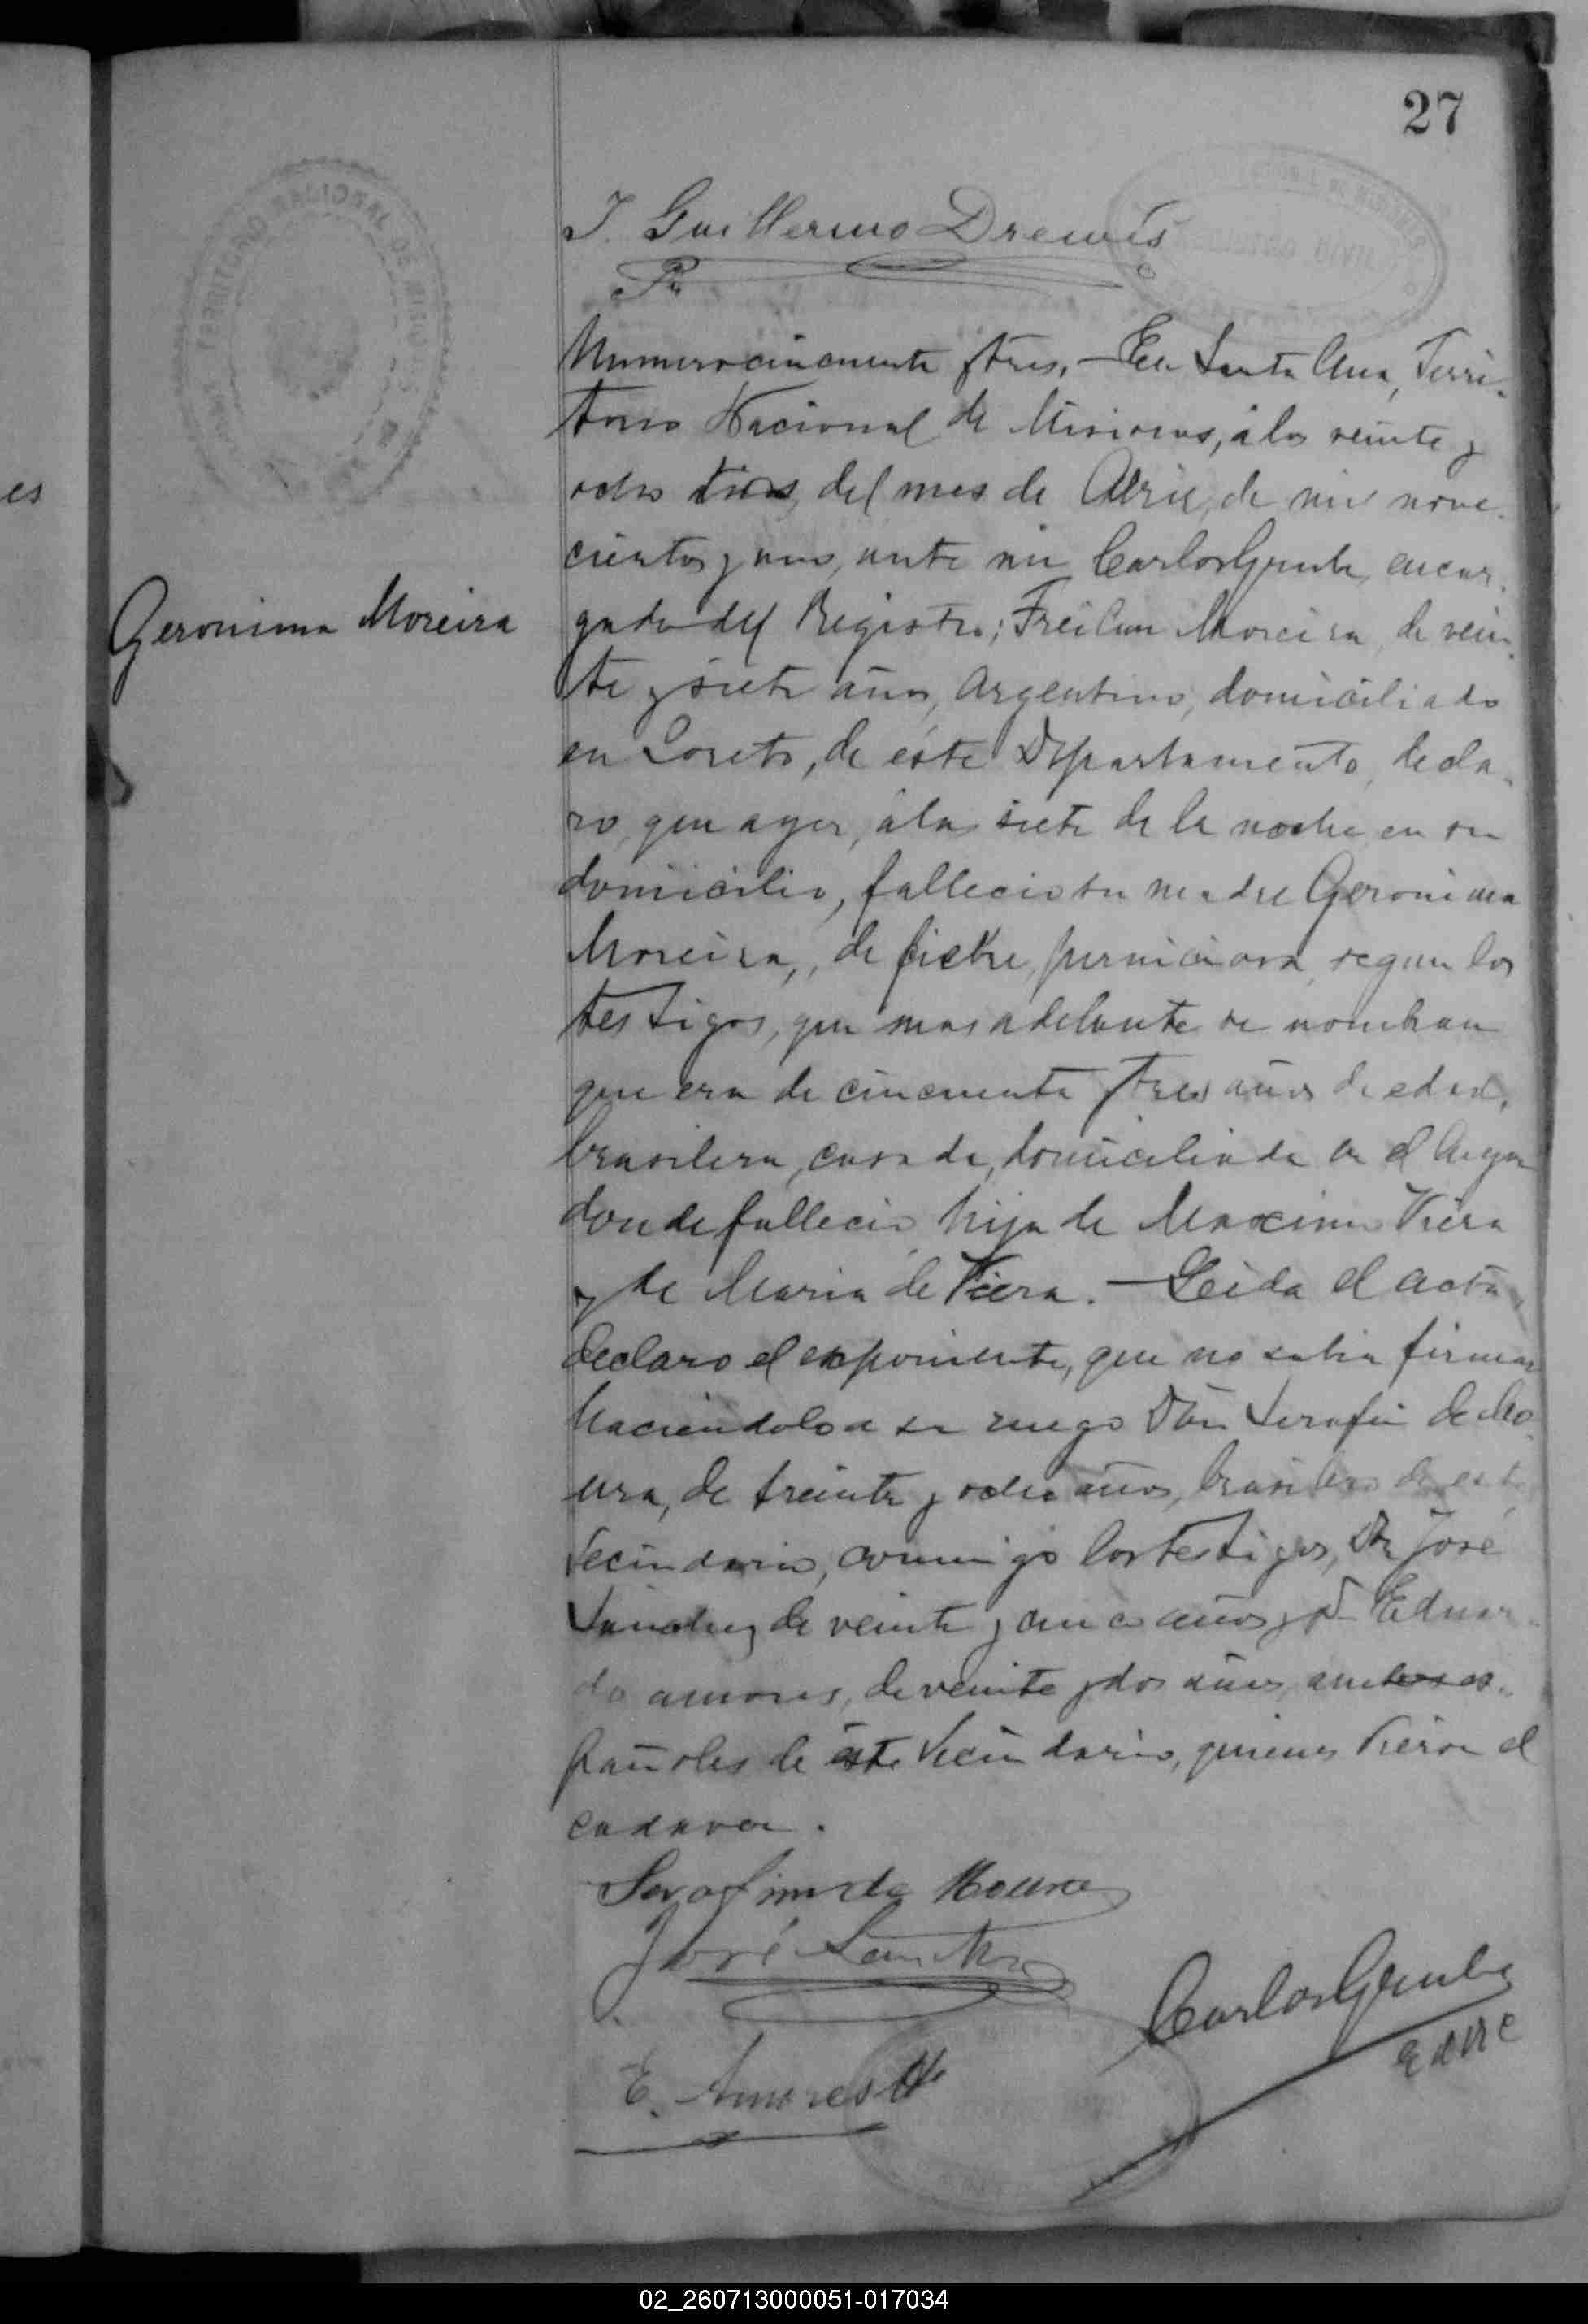 27
J. Guillermo Drewes
TERRITORIO NACIONAL DE MISIONES
Numero cincuenta y tres. — En Santa Ana, Terri-
torio Nacional de Misiones, á los veinte y
ocho dias, del mes de Abril, de mil nove-
cientos y uno, ante mi Carlos Grube, encar-
gado del Registro; Moreira, de vein-
te y siete años, Argentino, domiciliado
en Loreto, de éste Departamento, decla-
ro, que ayer, á las siete de la noche en su
domicilio, fallecio su madre Geronima
Moreira, de fiebre perniciosa, segun los
testigos, que mas adelante se nombran
que era de cincuenta y tres años de edad,
brasilera, casada, domiciliada en el lugar
donde fallecio hija de Maximo Viera
y de Maria de Viera. — Leida el acta,
declaro el exponente, que no sabia firmar
haciendolo a su ruego Don Serafin de Mo-
ura, de treinta y ocho años, brasilero de este
Vecindario, conmigo los testigos, Dn José
Sanchez de veinte y cinco años y Dn Eduar-
do amores, de veinte y dos años, ambos es-
pañoles de éste Vecindario, quienes vieron el
cadaver.
Geronima Moreira
es
Serafim de Moura
José Sanchez
Carlos Grube
E. Amores
02_260713000051-017034